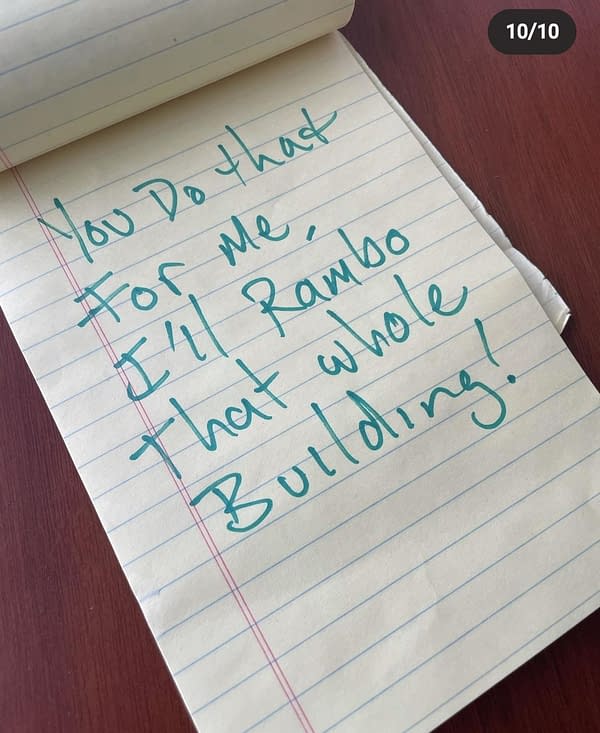 10/10
You Do that
For me,
I'll Rambo
That whole
Building!